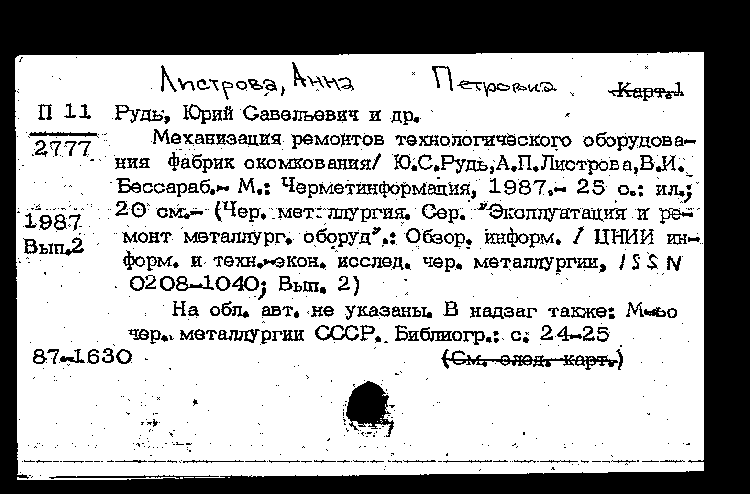 Листрова, Анна Петровна Карт.1
П 11 Рудь, Юрий Савельевич и др.
2777 Механизация ремонтов технологического оборудова-
ния фабрик окомкования/ Ю.С.Рудь,А.П.Листрова,В.И.
Бессараб.- М.: Черметинформация, 1987.- 25 с.: ил.;
1987 20 см.- (Чер. металлургия. Сер. "Эксплуатация и ре-
Вып.2 монт металлург. оборуд".: Обзор. информ. / ЦНИИ ин-
форм. и техн.-экон. исслед. чер. металлургии, ISSN
0208-1040; Вып. 2)
На обл. авт. не указаны. В надзаг также: М-во
чер. металлургии СССР. Библиогр.: с. 24-25
87-1630 (См. след. карт.)